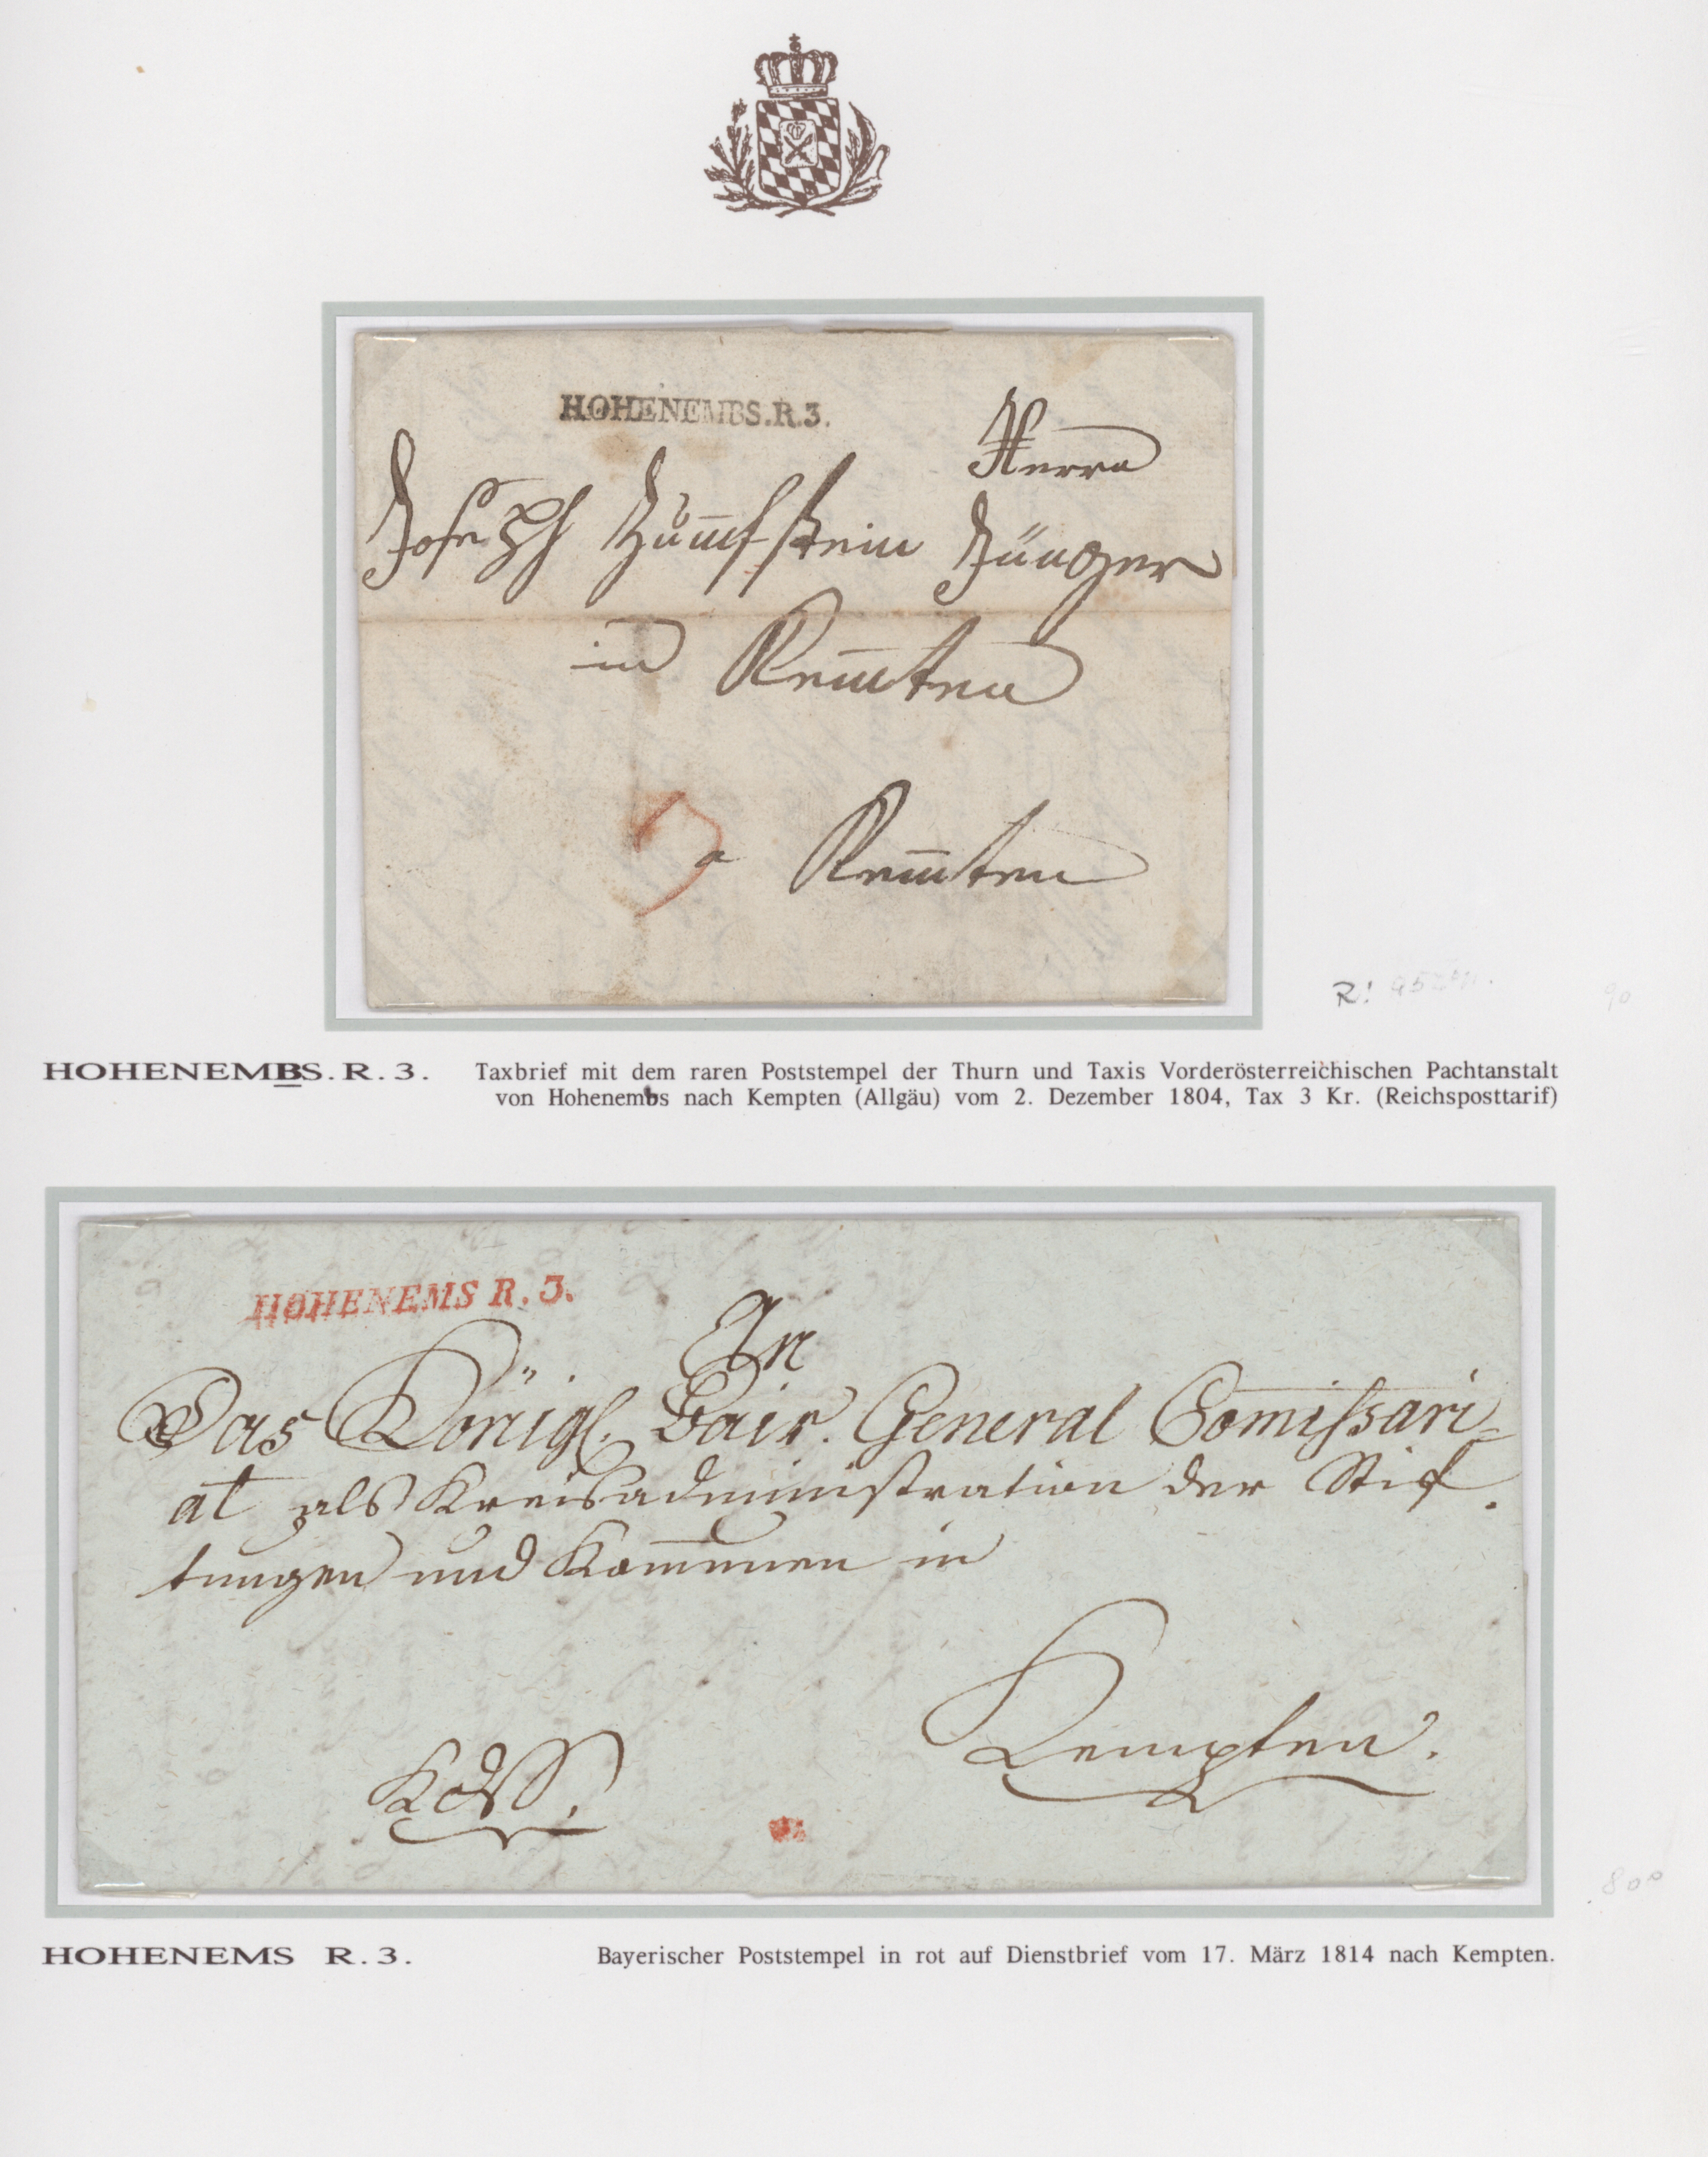 HOHENEMBS.R.3.
Herrn
Joseph
in Kem̅ten
3
a Kem̅ten
R!
90
HOHENEMBS.R.3. Taxbrief mit dem raren Poststempel der Thurn und Taxis Vorderösterreichischen Pachtanstalt
von Hohenembs nach Kempten (Allgäu) vom 2. Dezember 1804, Tax 3 Kr. (Reichsposttarif)
HOHENEMS R. 3.
An
Das Königl. Bair. General Com̅issari=
at als Kreisadministration der Stif=
tungen und Kom̅unen in
Kempten.
800
HOHENEMS R.3. Bayerischer Poststempel in rot auf Dienstbrief vom 17. März 1814 nach Kempten.